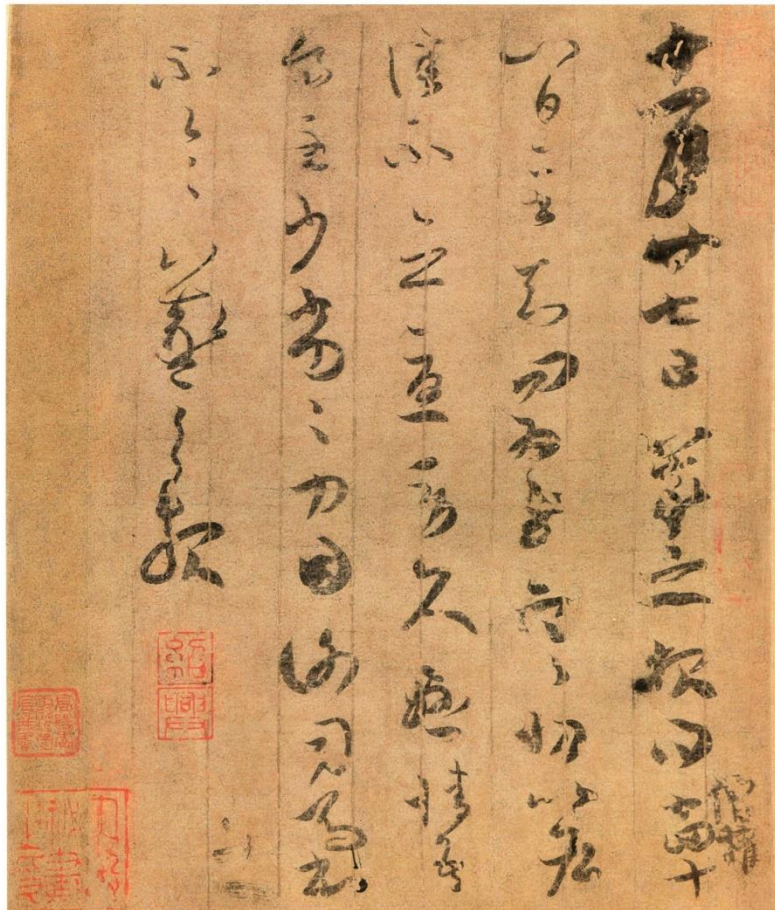 十一月廿七日羲之報得十四十
僧權
八日二書知問為慰寒切比各
佳不念憂勞久懸情吾
食至少劣劣力因謝司馬書
不一一羲之報
紹興